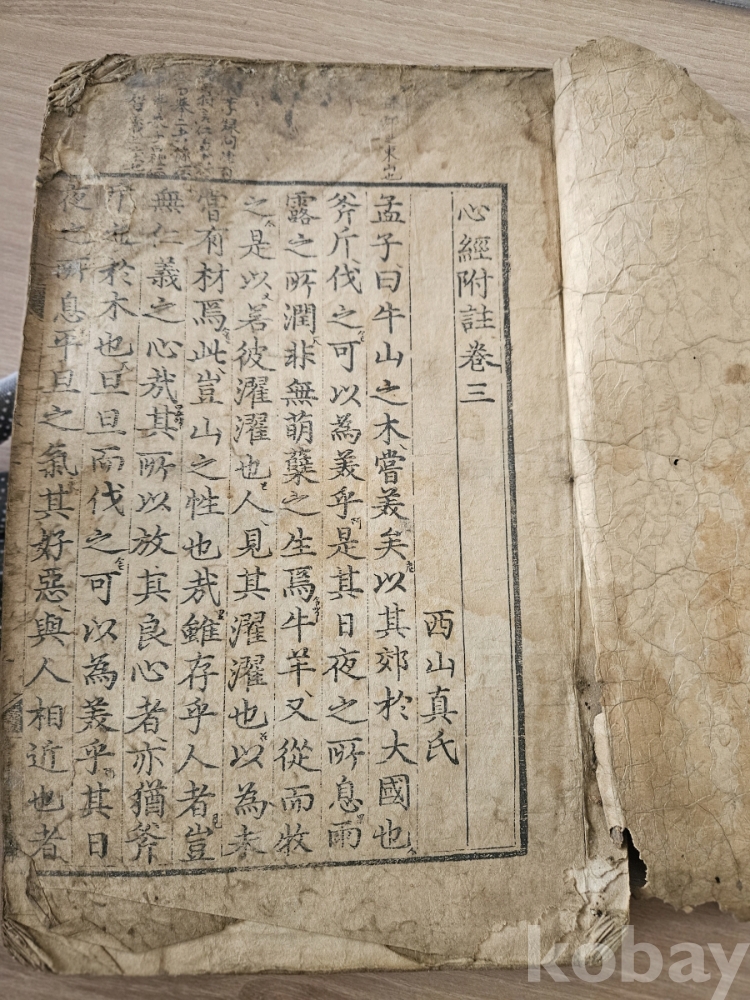 心經附註卷三
西山真氏
孟子曰牛山之木嘗美矣以其郊於大國也
斧斤伐之可以為美乎是其日夜之所息雨
露之所潤非無萌蘖之生焉牛羊又從而牧
之是以若彼濯濯也人見其濯濯也以為未
嘗有材焉此豈山之性也哉雖存乎人者豈
無仁義之心哉其所以放其良心者亦猶斧
斤之於木也旦旦而伐之可以為美乎其日
夜之所息平旦之氣其好惡與人相近也者
kobay